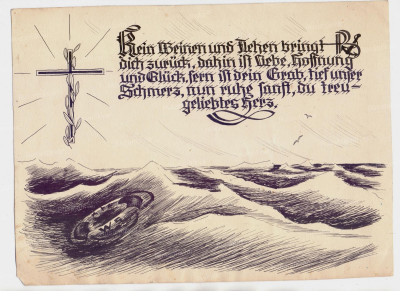 Kein Weinen und Flehen bringt
dich zurück, dahin ist Liebe, Hoffnung
und Glück, fern ist dein Grab, tief unser
Schmerz, nun ruhe sanft, du treu-
geliebtes Herz.